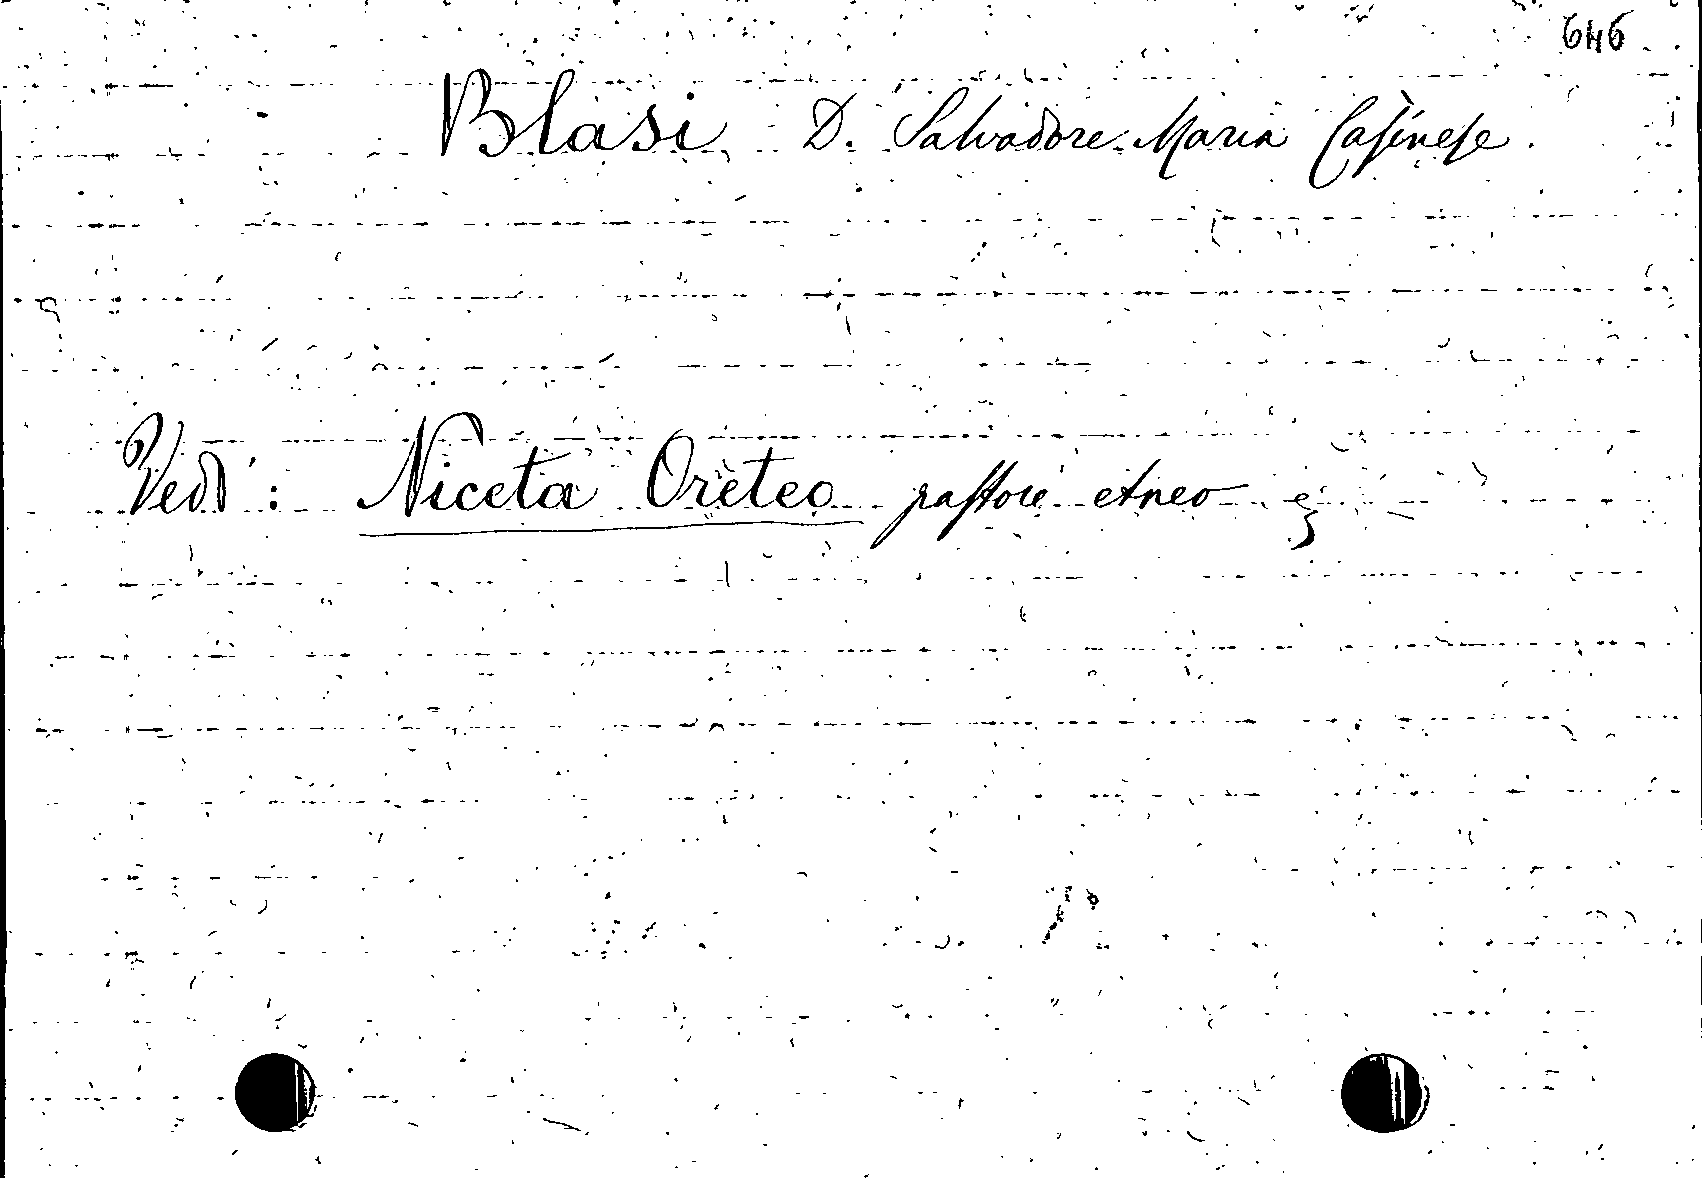 646
Blasi, D. Salvadore Maria Casinese.
Vedi: Niceta Oreteo pastore etneo